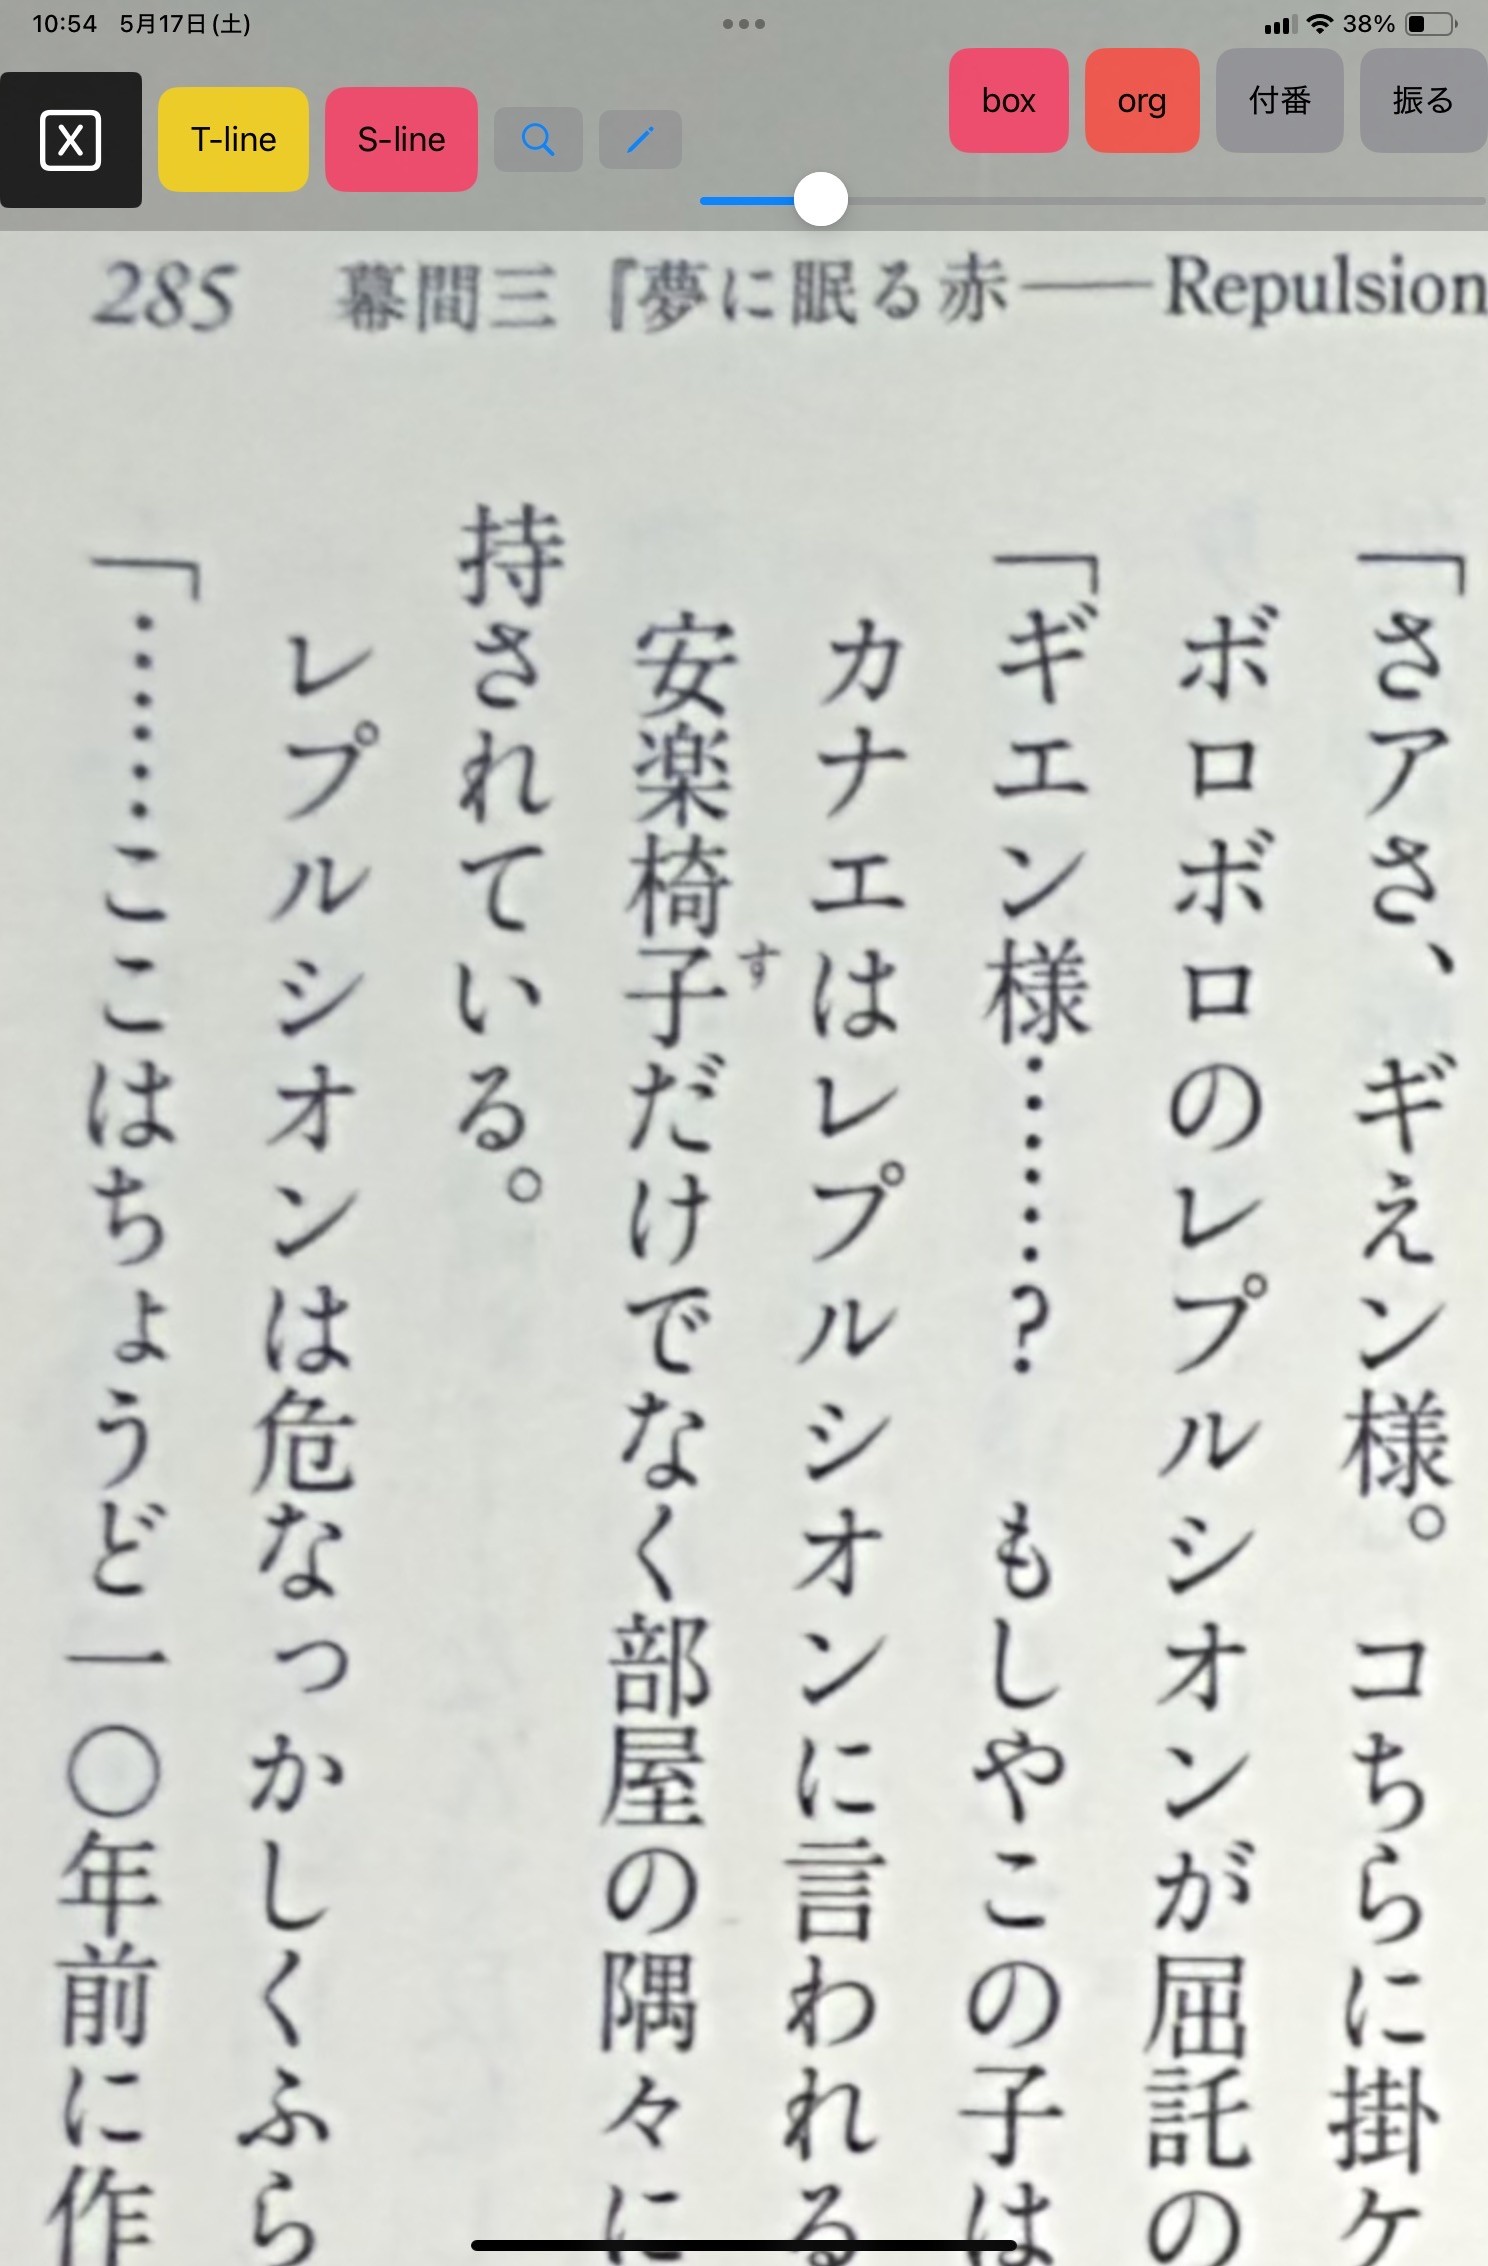 10:54 5月17日(土)
38%
X
T-line
S-line
box
org
付番
振る
285 幕間三『夢に眠る赤――Repulsion
「さアさ、ギえン様。コちらに掛ケ
ボロボロのレプルシオンが屈託の
「ギエン様……? もしやこの子は
カナエはレプルシオンに言われる
安楽椅子だけでなく部屋の隅々に
す
持されている。
レプルシオンは危なっかしくふら
「……ここはちょうど一〇年前に作